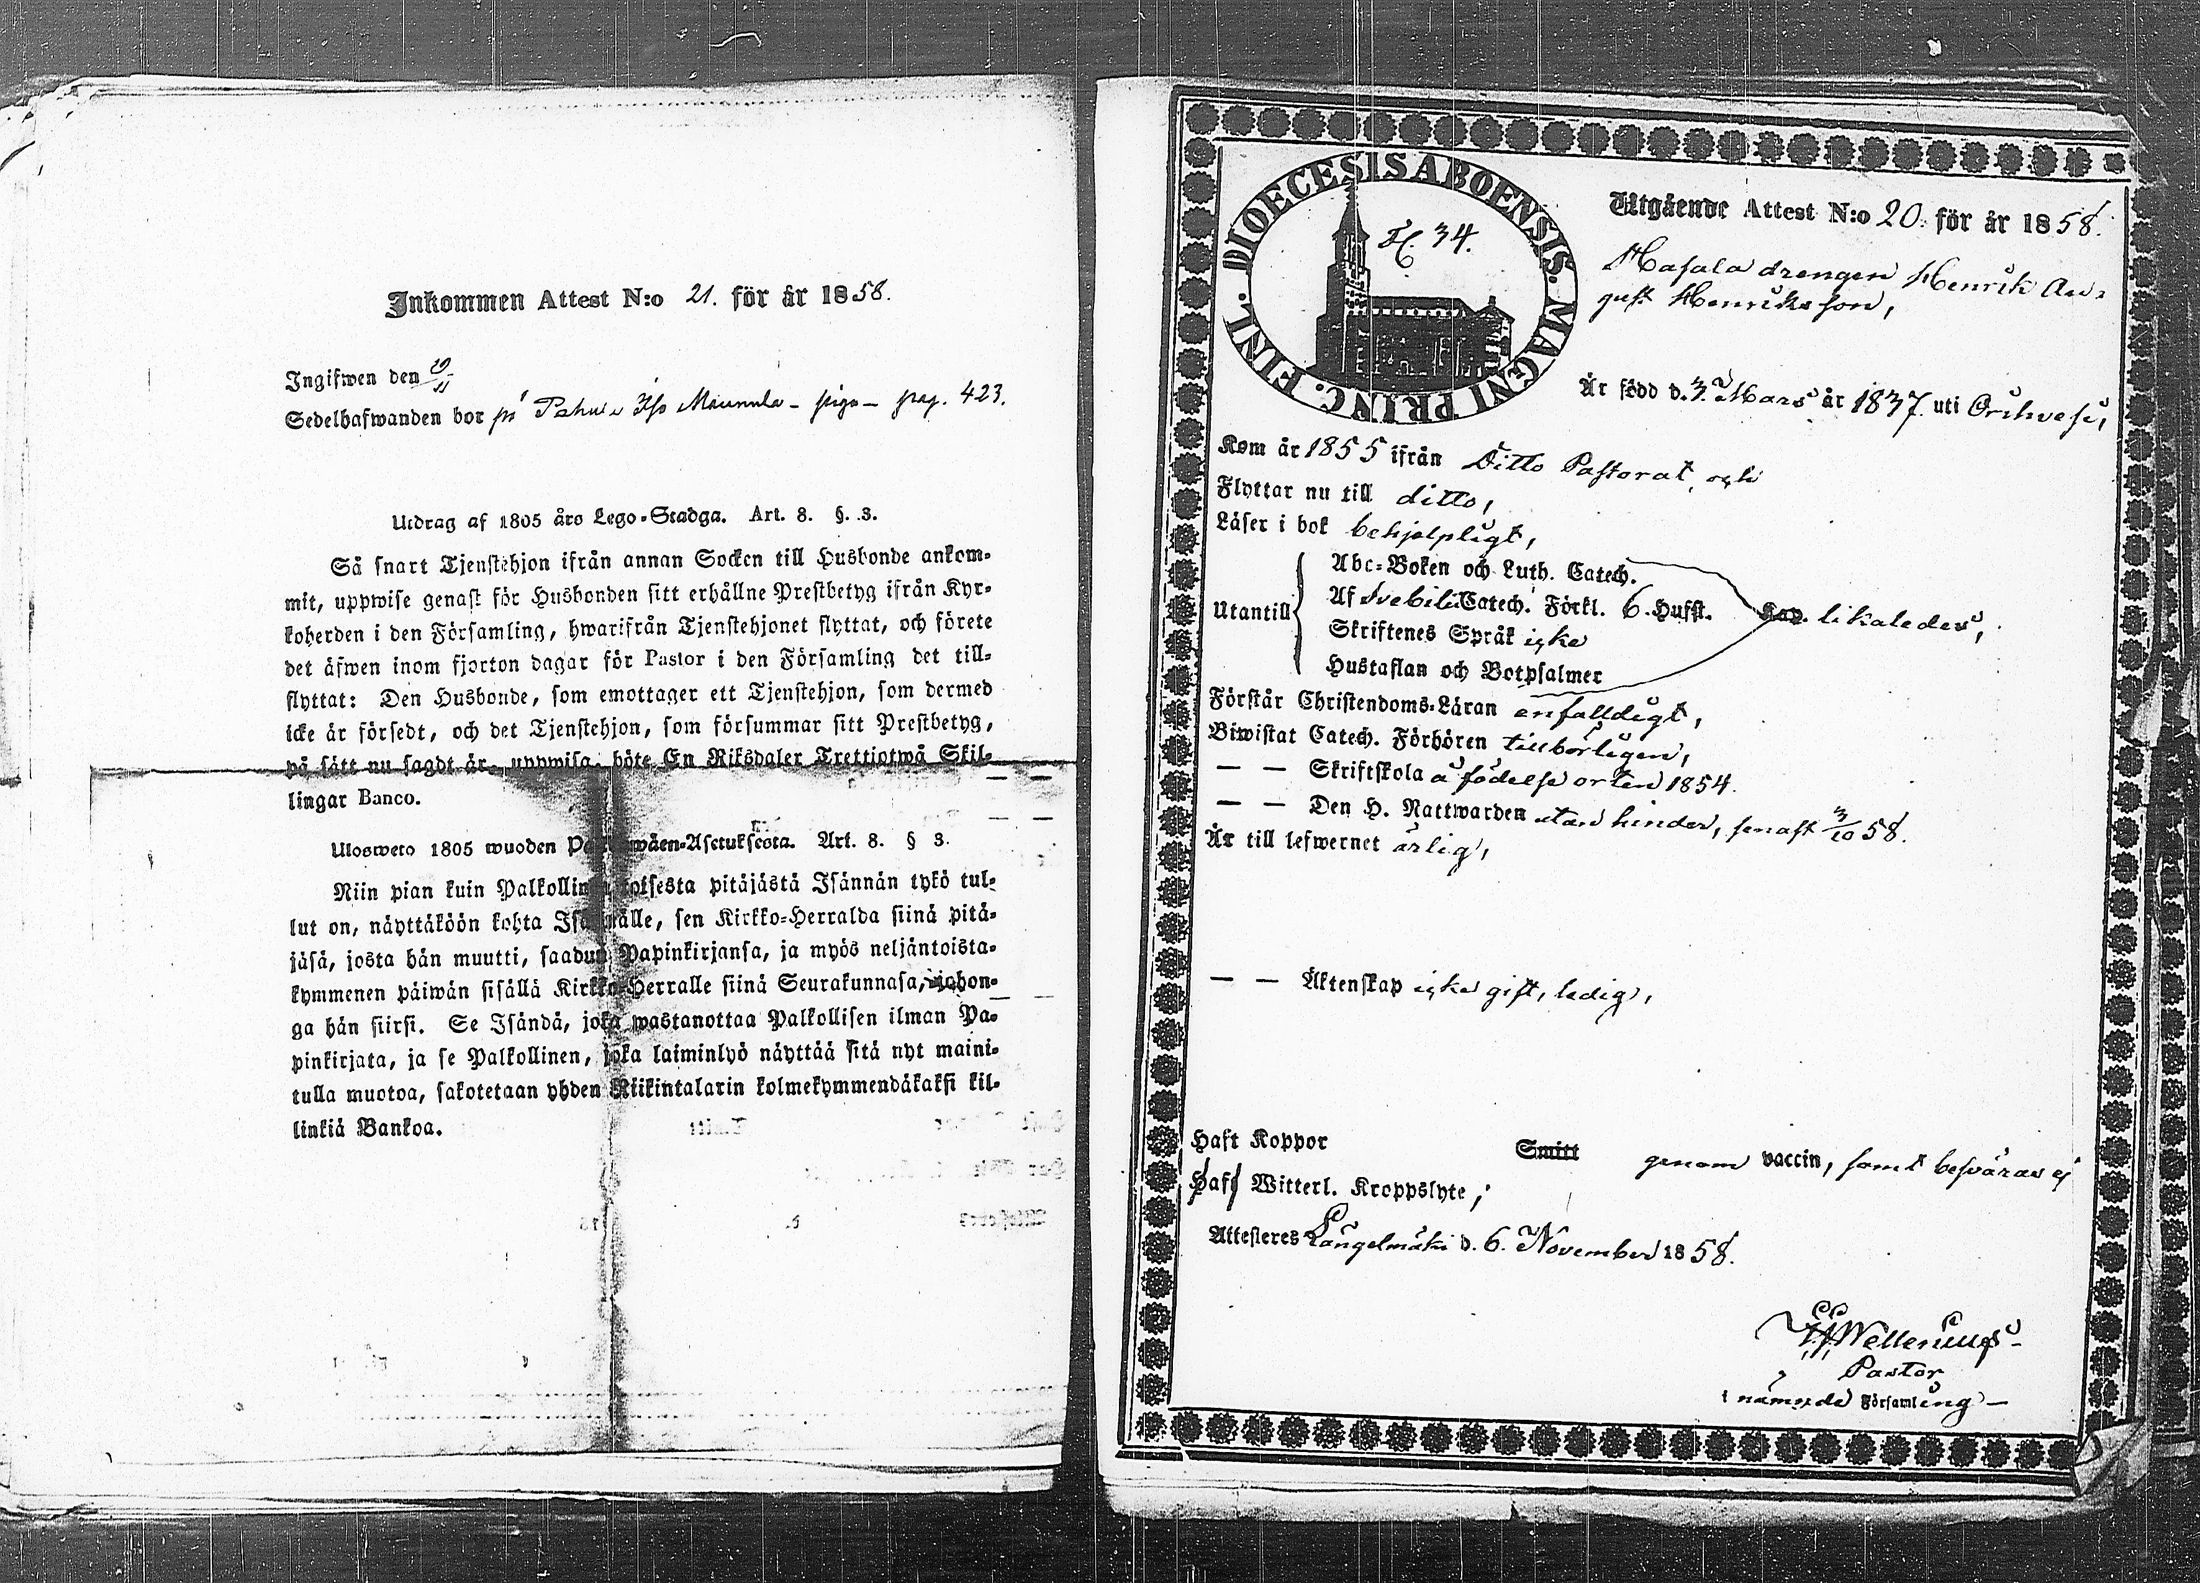 Inkommen Attest N:o 21. för år 1858.
Ingifwen den 10/11
Sedelhafwanden bor på Pahu Maunula - piga - pag. 423.
Utdrag af 1805 års Lego-Stadga. Art. 8. §. 3.
Så snart Tjenstehjon ifrån annan Socken till Husbonde ankom-
mit, uppwise genast för Husbonden sitt erhållne Prestbetyg ifrån Kyr-
koherden i den Församling, hwarifrån Tjenstehjonet flyttat, och förete
det äfwen inom fjorton dagar för Pastor i den Församling det till-
flyttat: Den Husbonde, som emottager ett Tjenstehjon, som dermed
icke är försedt, och det Tjenstehjon, som försummar sitt Prestbetyg,
på sätt nu sagdt är, uppwisa, böte En Riksdaler Trettiotwå Skil-
lingar Banco.
Ulosweto 1805 wuoden wäen-Asetuksesta. Art. 8. § 3.
Niin pian kuin Palkollinen toisesta pitäjästä Isännän tykö tul-
lut on, näyttäköön kohta Isännälle, sen Kirkko-Herralda siinä pitä-
jäsä, josta hän muutti, saadun Papinkirjansa, ja myös neljäntoista-
kymmenen päiwän sisällä Kirkko-Herralle siinä Seurakunnasa, johon-
ga hän siirsi. Se Isändä, joka wastanottaa Palkollisen ilman Pa-
pinkirjata, ja se Palkollinen, joka laiminlyö näyttää sitä nyt maini-
tulla muotoa, sakotetaan yhden Riikintalarin kolmekymmendäkaksi kil-
linkiä Bankoa.
DIOECESIS ABOENSIS. MAGNI PRINC. FINL.
34.
Utgående Attest N:o 20. för år 1858.
Masala drengen Henrik Au-
gust Henriksson,
Är född d. 3. Mars år 1837. uti Orihvesi,
Kom år 1855 ifrån Ditto Pastorat, och
Flyttar nu till ditto,
Läser i bok behjelpligt,
Abc-Boken och Luth. Catech.
Utantill Af Svebilii Catech. Förkl. 6. Hufst. Kap. likaledes,
Skriftenes Språk icke
Hustaflan och Botpsalmer
Förstår Christendoms-Läran enfalldigt,
Biwistat Catech. Förhören tillbörligen,
— — Skriftskola å födelse orten 1854.
— — Den H. Nattwarden utan hinder, senast 3/10 58.
Är till lefwernet ärlig,
— — Äktenskap icke gift, ledig,
Haft Koppor Smitt genom vaccin, samt besväras ej
Haf Witterl. Kroppslyte,
Attesteres Längelmäki d. 6. November 1858.
Pastor
i nämnde Församling —